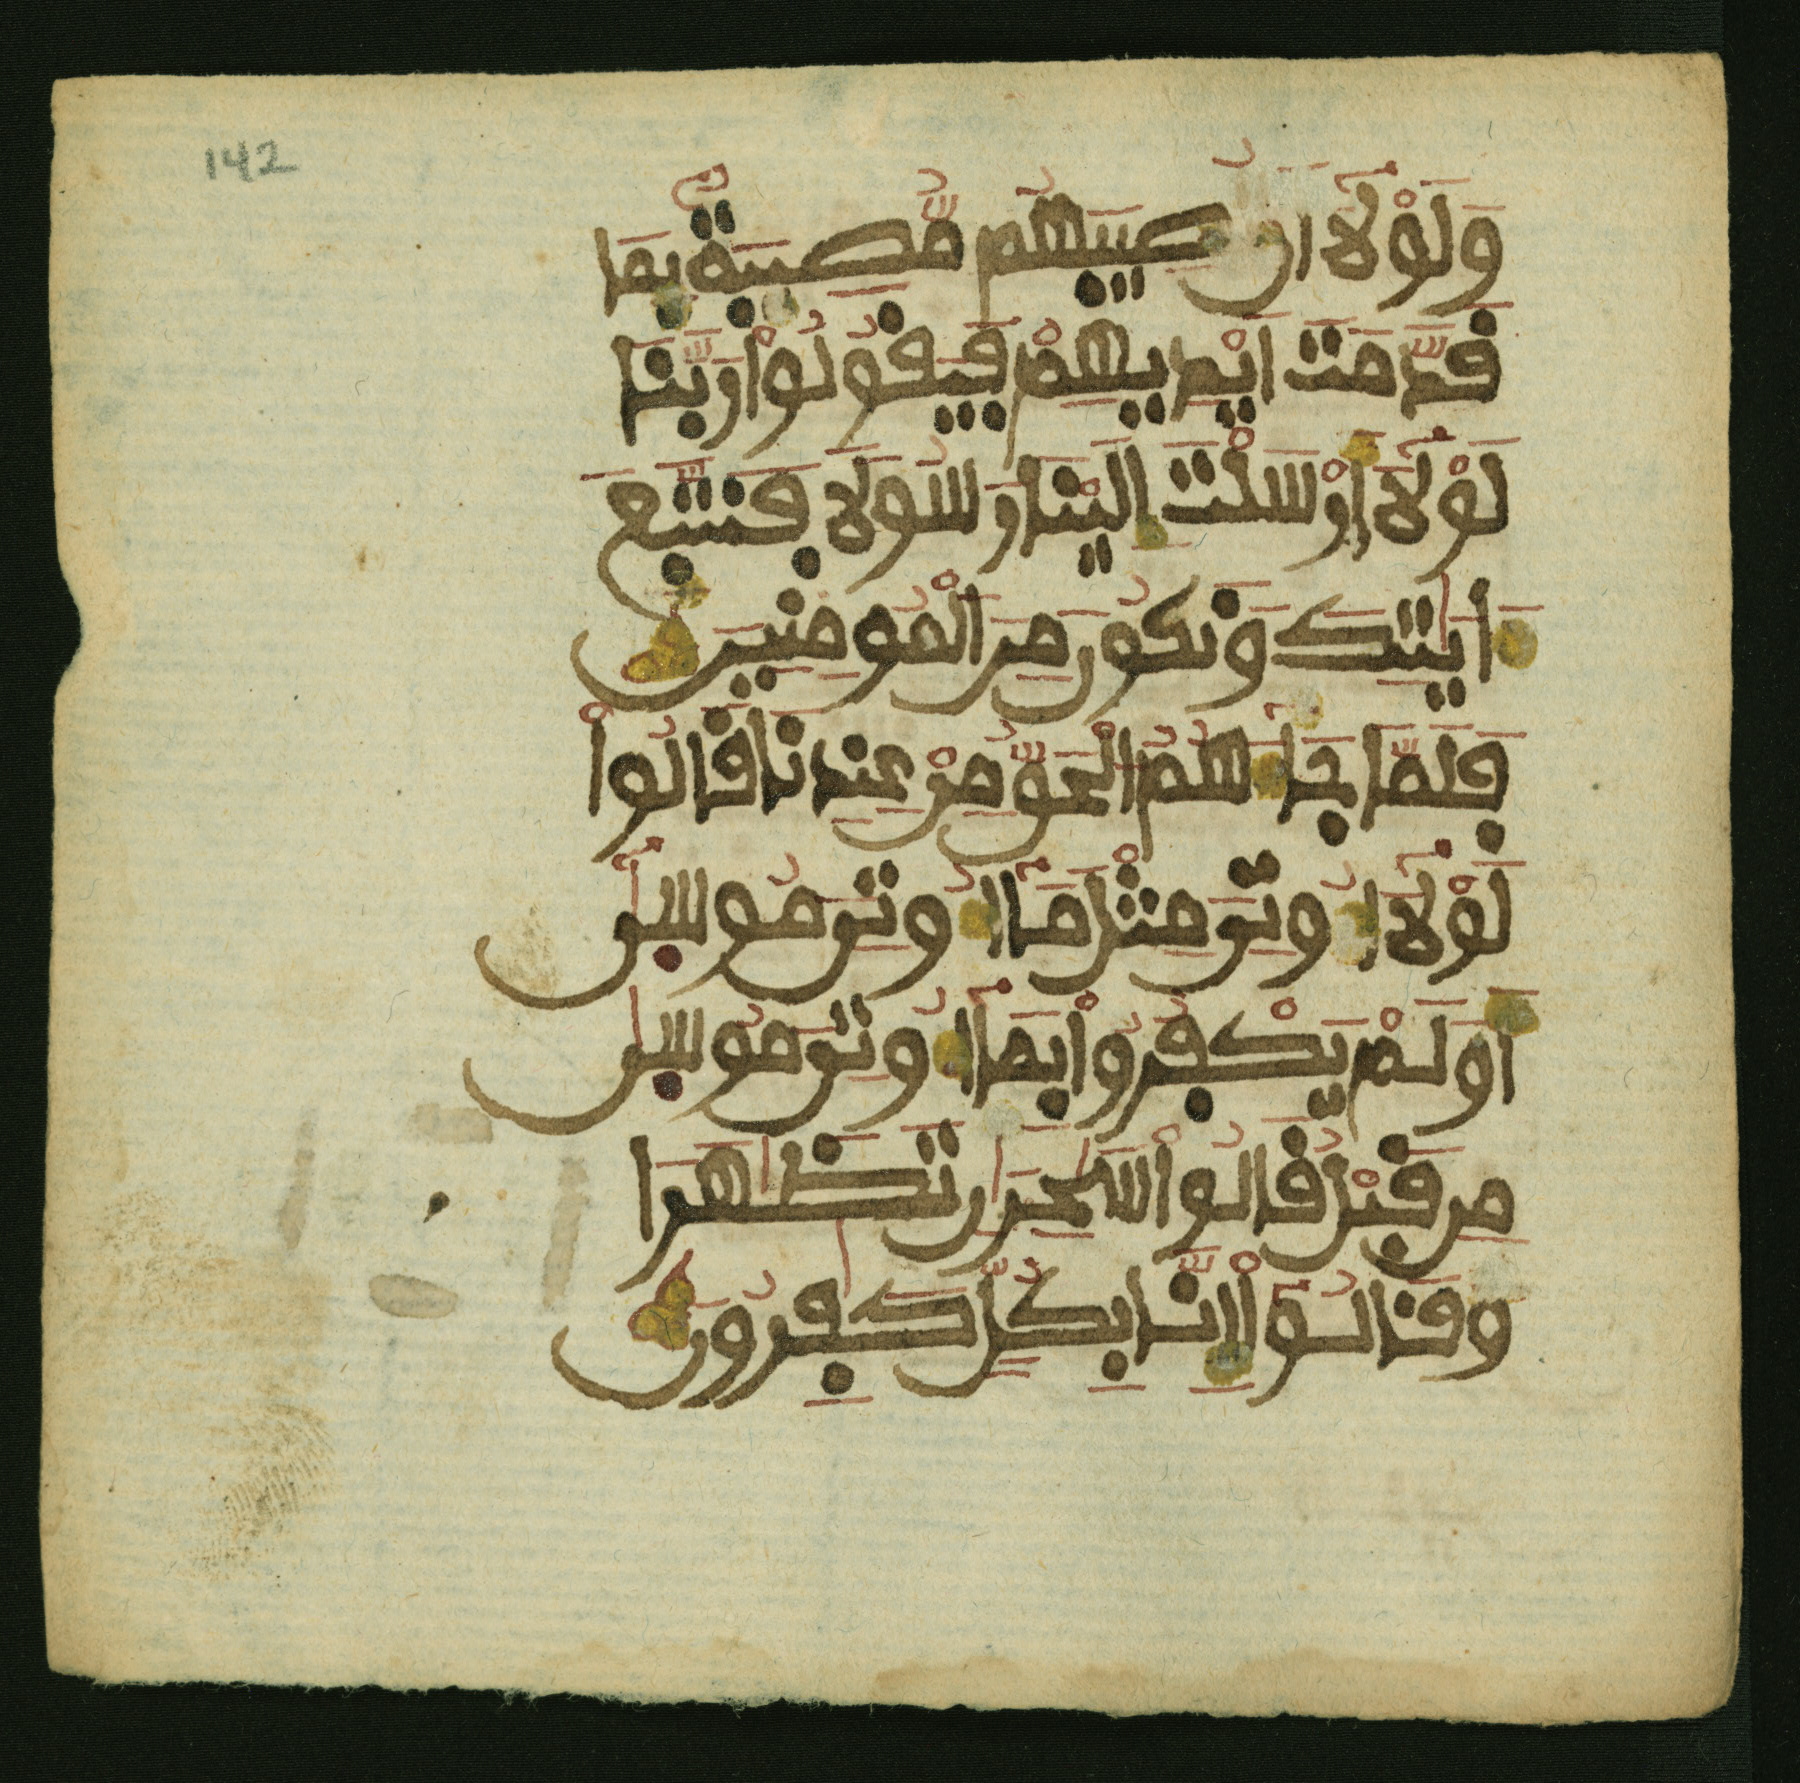 142
وَلَوْلَا أَن تُصِيبَهُم مُّصِيبَةٌ بِمَا
قَدَّمَتَ اَيْدِيهِمْ فَيَقُولُواْ رَبَّنَا
لَوْلَا أَرْسَلْتَ إِلَيْنَا رَسُولًا فَنَتَّبِعَ
ءَايَٰتِكَ وَنَكُونَ مِنَ الْمُومِنِينَ
فَلَمَّا جَاءَهُمُ الْحَقُّ مِنْ عِندِنَا قَالُواْ
لَوْلَا أُوتِيَ مِثْلَ مَا أُوتِيَ مُوسَىٰ
أَوَلَمْ يَكْفُرُواْ بِمَا أُوتِيَ مُوسَىٰ
مِن قَبْلُ قَالُواْ سَٰحِرَٰنِ تَظَّٰهَرَا
وَقَالُواْ إِنَّا بِكُلٍّ كَٰفِرُونَ